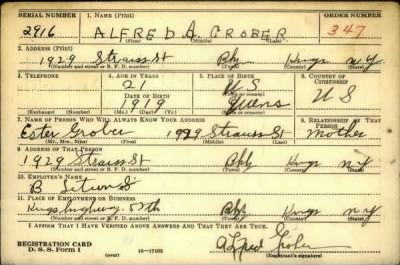 SERIAL NUMBER 1. NAME (Print) ORDER NUMBER
2916 ALFRED A. GROBER 347
(First) (Middle) (Last)
2. ADDRESS (Print)
1929 Strauss St Bkly Kings N Y
(Number and street or R. F. D. number) (Town) (County) (State)
3. TELEPHONE 4. AGE IN YEARS 5. PLACE OF BIRTH 6. COUNTRY OF CITIZENSHIP
21 U S
DATE OF BIRTH (Town or county)
1919 Queens U S
(Exchange) (Number) (Mo.) (Day) (Yr.) (State or country)
7. NAME OF PERSON WHO WILL ALWAYS KNOW YOUR ADDRESS 8. RELATIONSHIP OF THAT PERSON
Ester Grober 1929 Strauss St Mother
(Mr., Mrs., Miss) (First) (Middle) (Last)
9. ADDRESS OF THAT PERSON
1929 Strauss St Bkly Kings N Y
(Number and street or R. F. D. number) (Town) (County) (State)
10. EMPLOYER'S NAME
B
11. PLACE OF EMPLOYMENT OR BUSINESS
Kings highway Bkly Kings N Y
(Number and street or R. F. D. number) (Town) (County) (State)
I AFFIRM THAT I HAVE VERIFIED ABOVE ANSWERS AND THAT THEY ARE TRUE.
REGISTRATION CARD
D. S. S. Form 1 (over) 16—17105 Alfred Grober
(Registrant's signature)